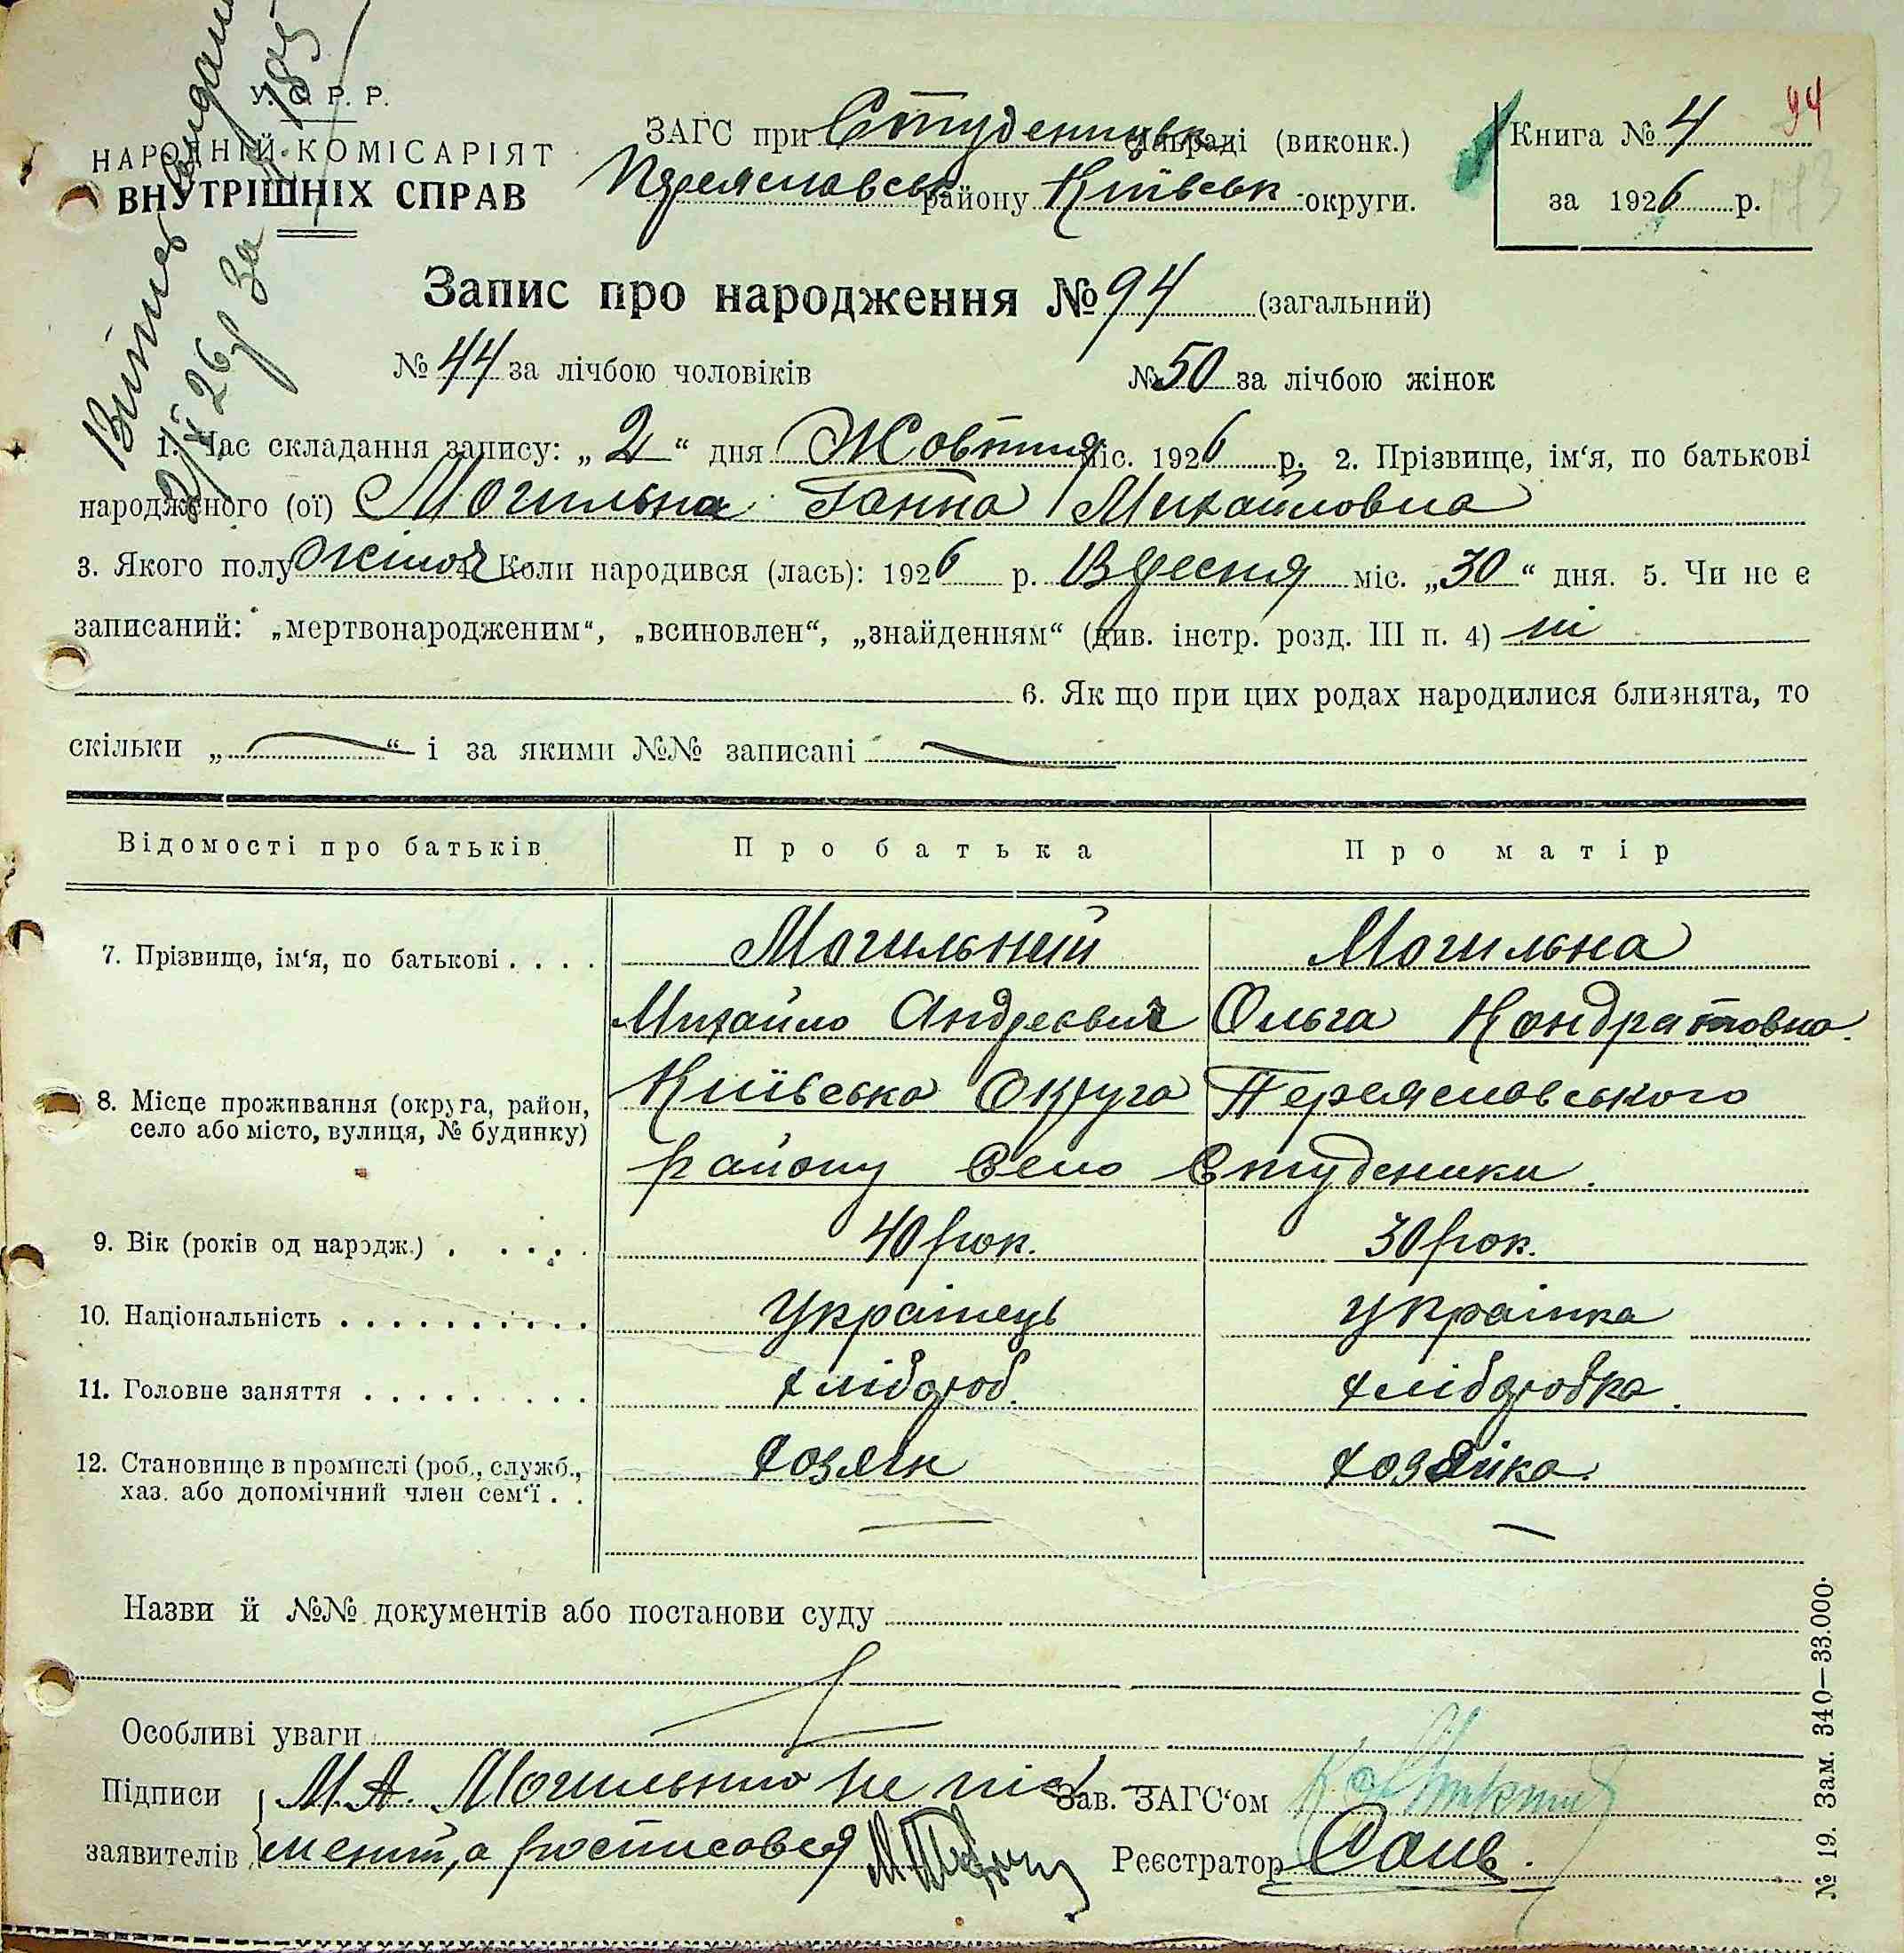 Витяг видано
2/X 26 р за № 185
У. С. Р. Р.
НАРОДНІЙ КОМІСАРІЯТ
ВНУТРІШНІХ СПРАВ
ЗАГС при Студеницьк сільраді (виконк.)
Переяславськ району Київськ округи.
Книга № 4
94
за 1926 р.
173
Запис про народження № 94 (загальний)
№ 44 за лічбою чоловіків № 50 за лічбою жінок
1. Час складання запису: „2“ дня Жовтня міс. 1926 р. 2. Прізвище, ім‘я, по батькові
народженого (ої) Могильна Ганна Михайловна
3. Якого полу жіноч 4. Коли народився (лась): 1926 р. Вересня міс. „30“ дня. 5. Чи не є
записаний: „мертвонародженим“, „всиновлен“, „знайденням“ (див. інстр. розд. III п. 4) ні
6. Як що при цих родах народилися близнята, то
скільки „ “ і за якими №№ записані
Відомості про батьків Про батька Про матір
7. Прізвище, ім‘я, по батькові . . . . Могильний Могильна
Михайло Андреевич Ольга Кондратовна.
8. Місце проживання (округа, район, Київська Округа Переяславського
село або місто, вулиця, № будинку) району Село Студеники.
9. Вік (років од нарэдж.) . . . . . 40 рок. 30 рок.
10. Національність . . . . . . . . . . Українець Українка
11. Головне заняття . . . . . . . . . хлібороб. хліборобка.
12. Становище в промислі (роб., служб., хозяін хозяйка.
хаз. або допомічний член сем‘ї . .
Назви й №№ документів або постанови суду
Особливі уваги
Підписи М. А. Могильний не піс Зав. ЗАГС‘ом
заявителів менний, а росписовся Реєстратор
№ 19. Зам. 340—33.000.